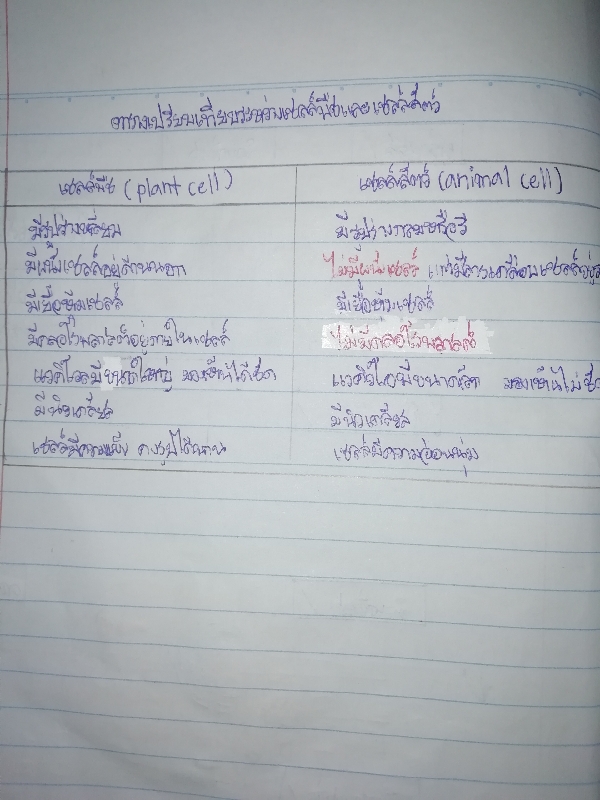 ตารางเปรียบเทียบระหว่างเซลล์พืชและเซลล์สัตว์
เซลล์พืช (plant cell) เซลล์สัตว์ (animal cell)
มีรูปร่างเหลี่ยม มีรูปร่างกลมหรือรี
มีผนังเซลล์อยู่ด้านนอก ไม่มีผนังเซลล์ แต่มีสารเคลือบเซลล์อยู่
มีเยื่อหุ้มเซลล์ มีเยื่อหุ้มเซลล์
มีคลอโรพลาสต์อยู่ภายในเซลล์ ไม่มีคลอโรพลาสต์
แวคิวโอลมีขนาดใหญ่ มองเห็นได้ชัด แวคิวโอลมีขนาดเล็ก มองเห็นไม่ชัด
มีนิวเคลียส มีนิวเคลียส
เซลล์มีความแข็ง คงรูปได้นาน เซลล์มีความอ่อนนุ่ม